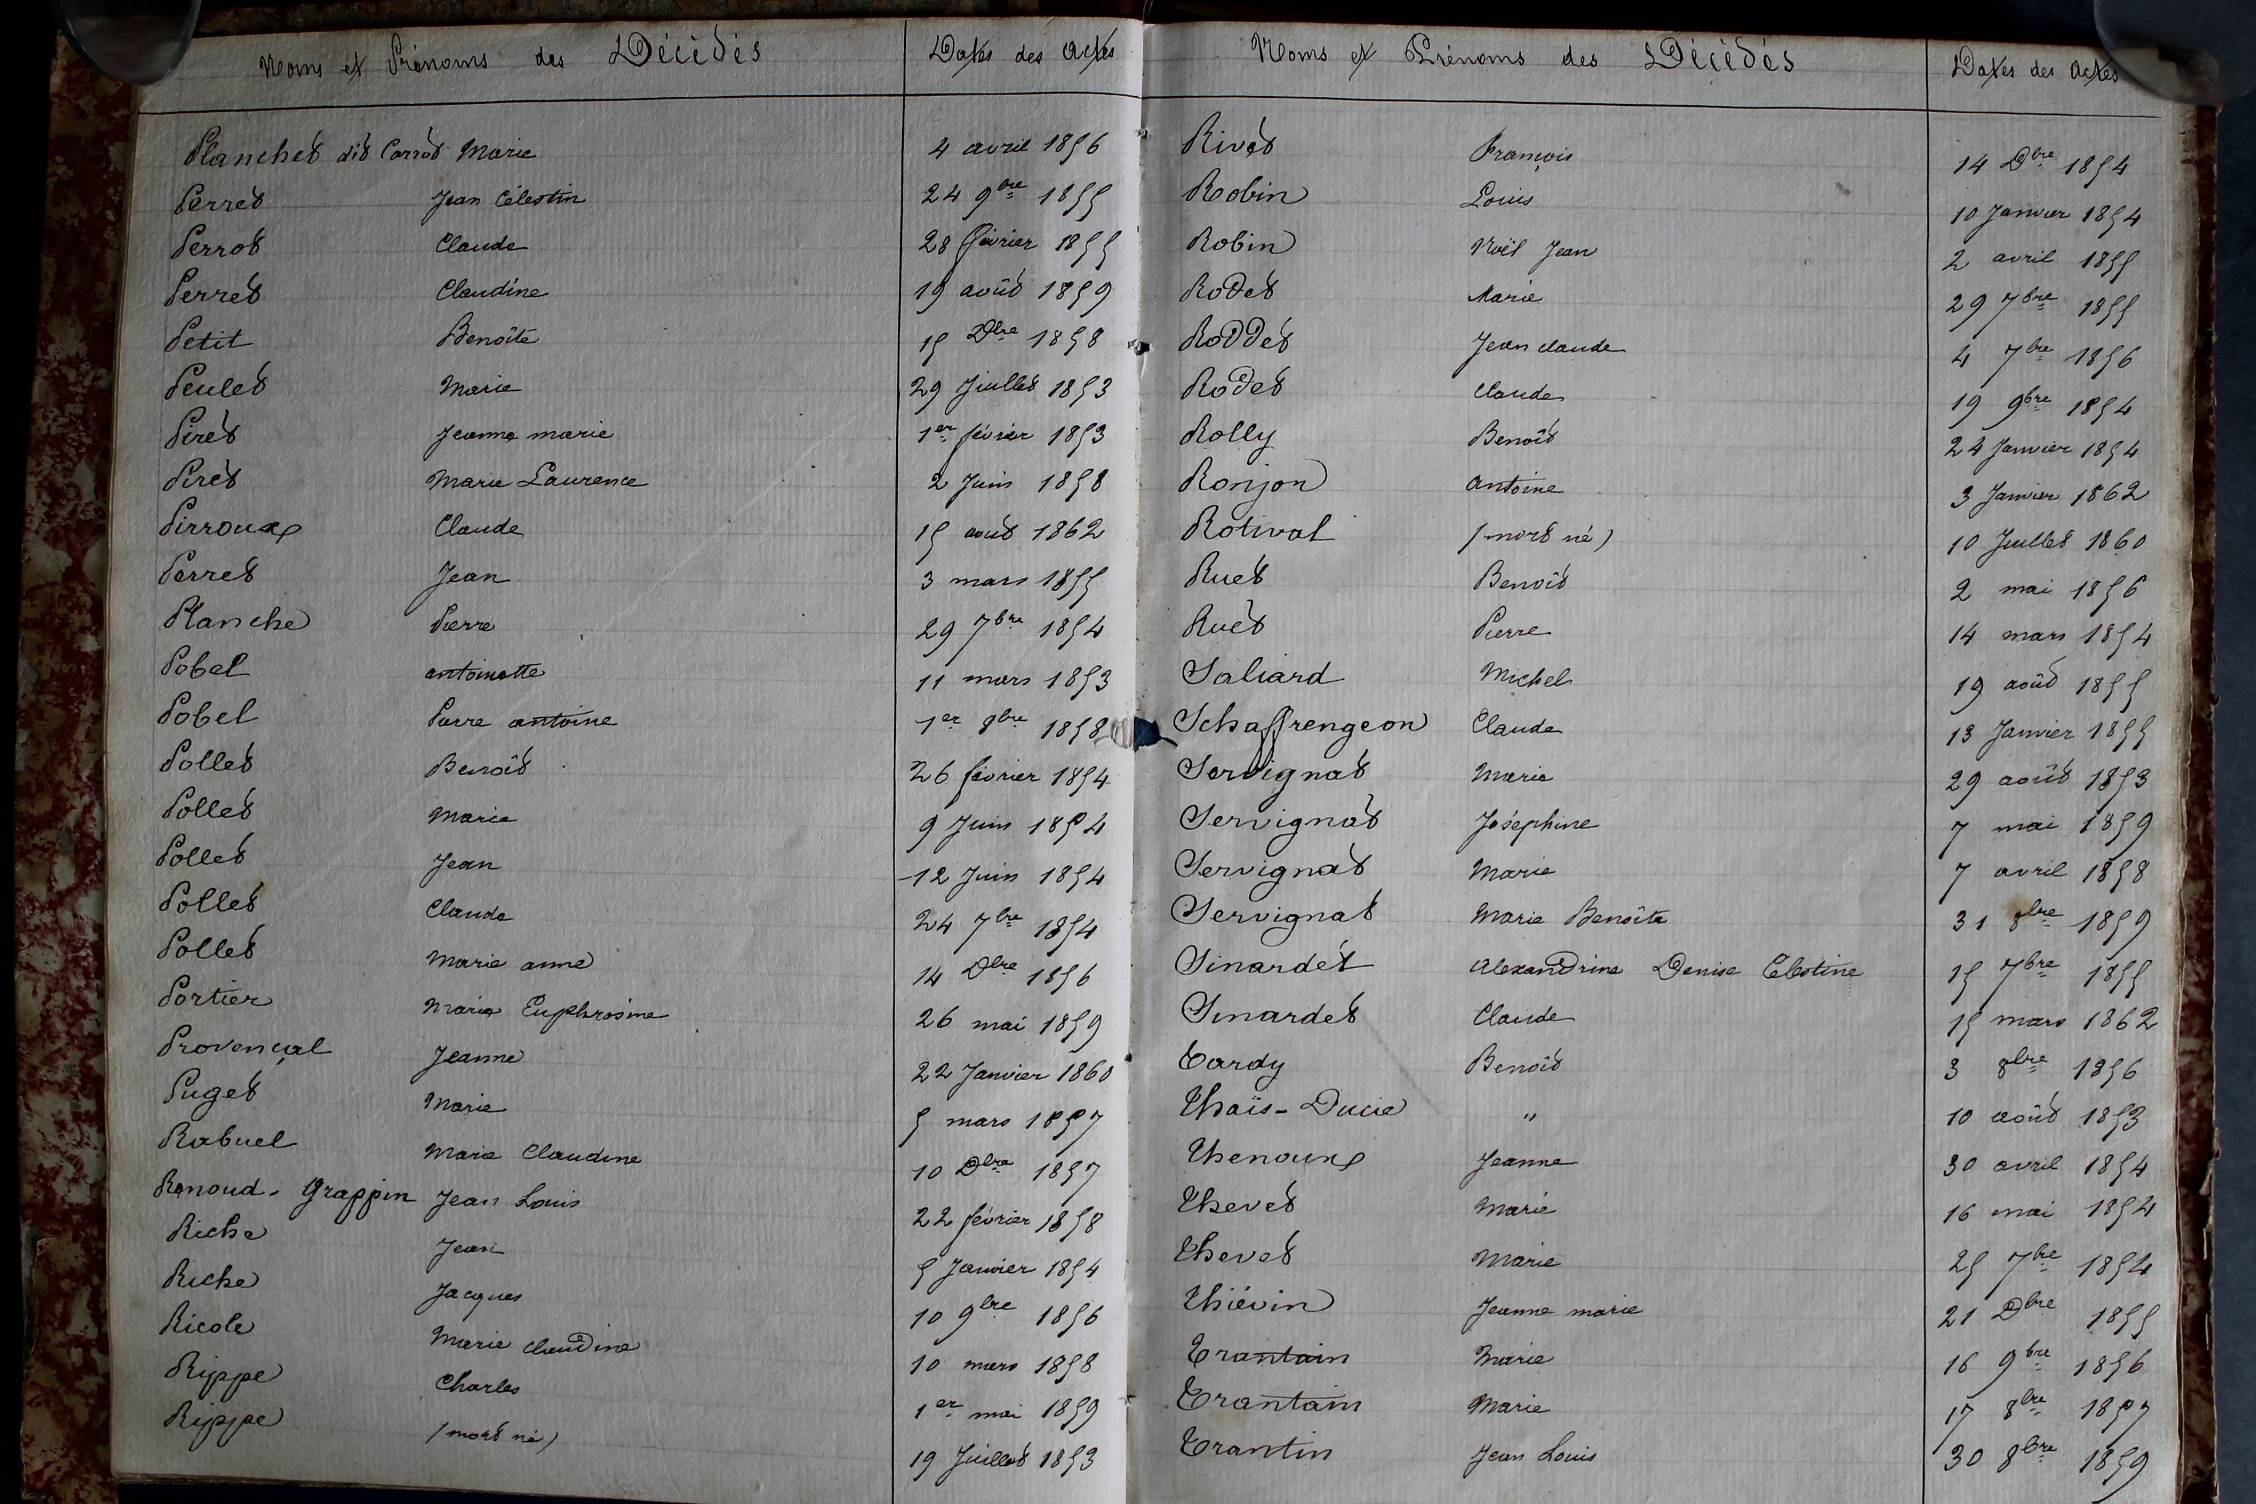 Noms et Prénoms des Décédés Dates des Actes
Planchet dit Corrot Marie 4 avril 1856
Perret Jean Célestin 24 9bre 1855
Perrot Claude 28 février 1855
Perret Claudine 19 août 1859
Petit Benoîte 15 Dbre 1858
Peulet Marie 29 Juillet 1853
Piret Jeanne marie 1er février 1853
Piret Marie Laurence 2 Juin 1858
Pirroux Claude 15 août 1862
Perret Jean 3 mars 1855
Planche Pierre 29 7bre 1854
Pobel antoinette 11 mars 1853
Pobel Pierre antoine 1er 9bre 1858
Pollet Benoît 26 février 1854
Pollet Marie 9 Juin 1854
Pollet Jean 12 Juin 1854
Pollet Claude 24 7bre 1854
Pollet Marie anne 14 Dbre 1856
Portier Marie Euphrosine 26 mai 1859
Provençal Jeanne 22 Janvier 1860
Puget Marie 5 mars 1857
Rabuel Marie Claudine 10 Dbre 1857
Renoud-Grappin Jean Louis 22 février 1858
Riche Jean 5 Janvier 1854
Riche Jacques 10 9bre 1856
Ricole Marie claudine 10 mars 1858
Rippe Charles 1er mai 1859
Rippe (mort né) 19 Juillet 1853
Noms et Prénoms des Décédés Dates des Actes
Rivet François 14 Dbre 1854
Robin Louis 10 Janvier 1854
Robin Noël Jean 2 avril 1855
Rodet Marie 29 7bre 1855
Roddet Jean claude 4 7bre 1856
Rodet Claude 19 9bre 1854
Rolly Benoît 24 Janvier 1854
Ronjon antoine 3 Janvier 1862
Rotival (mort né) 10 Juillet 1860
Ruet Benoît 2 mai 1856
Ruet Pierre 14 mars 1854
Saliard Michel 19 août 1855
Schaffrengeon Claude 13 Janvier 1855
Servignat Marie 29 août 1853
Servignat Joséphine 7 mai 1859
Servignat Marie 7 avril 1858
Servignat Marie Benoîte 31 8bre 1859
Sinardet Alexandrine Denise Célestine 15 7bre 1855
Sinardet Claude 15 mars 1862
Tardy Benoît 3 8bre 1856
Thaïs-Ducie " 10 août 1853
Thenoux Jeanne 30 avril 1854
Thevet Marie 16 mai 1854
Thevet Marie 25 7bre 1854
Thiévin Jeanne marie 21 Dbre 1855
Trantain Marie 16 9bre 1856
Trantain Marie 17 8bre 1857
Trantin Jean Louis 30 8bre 1859